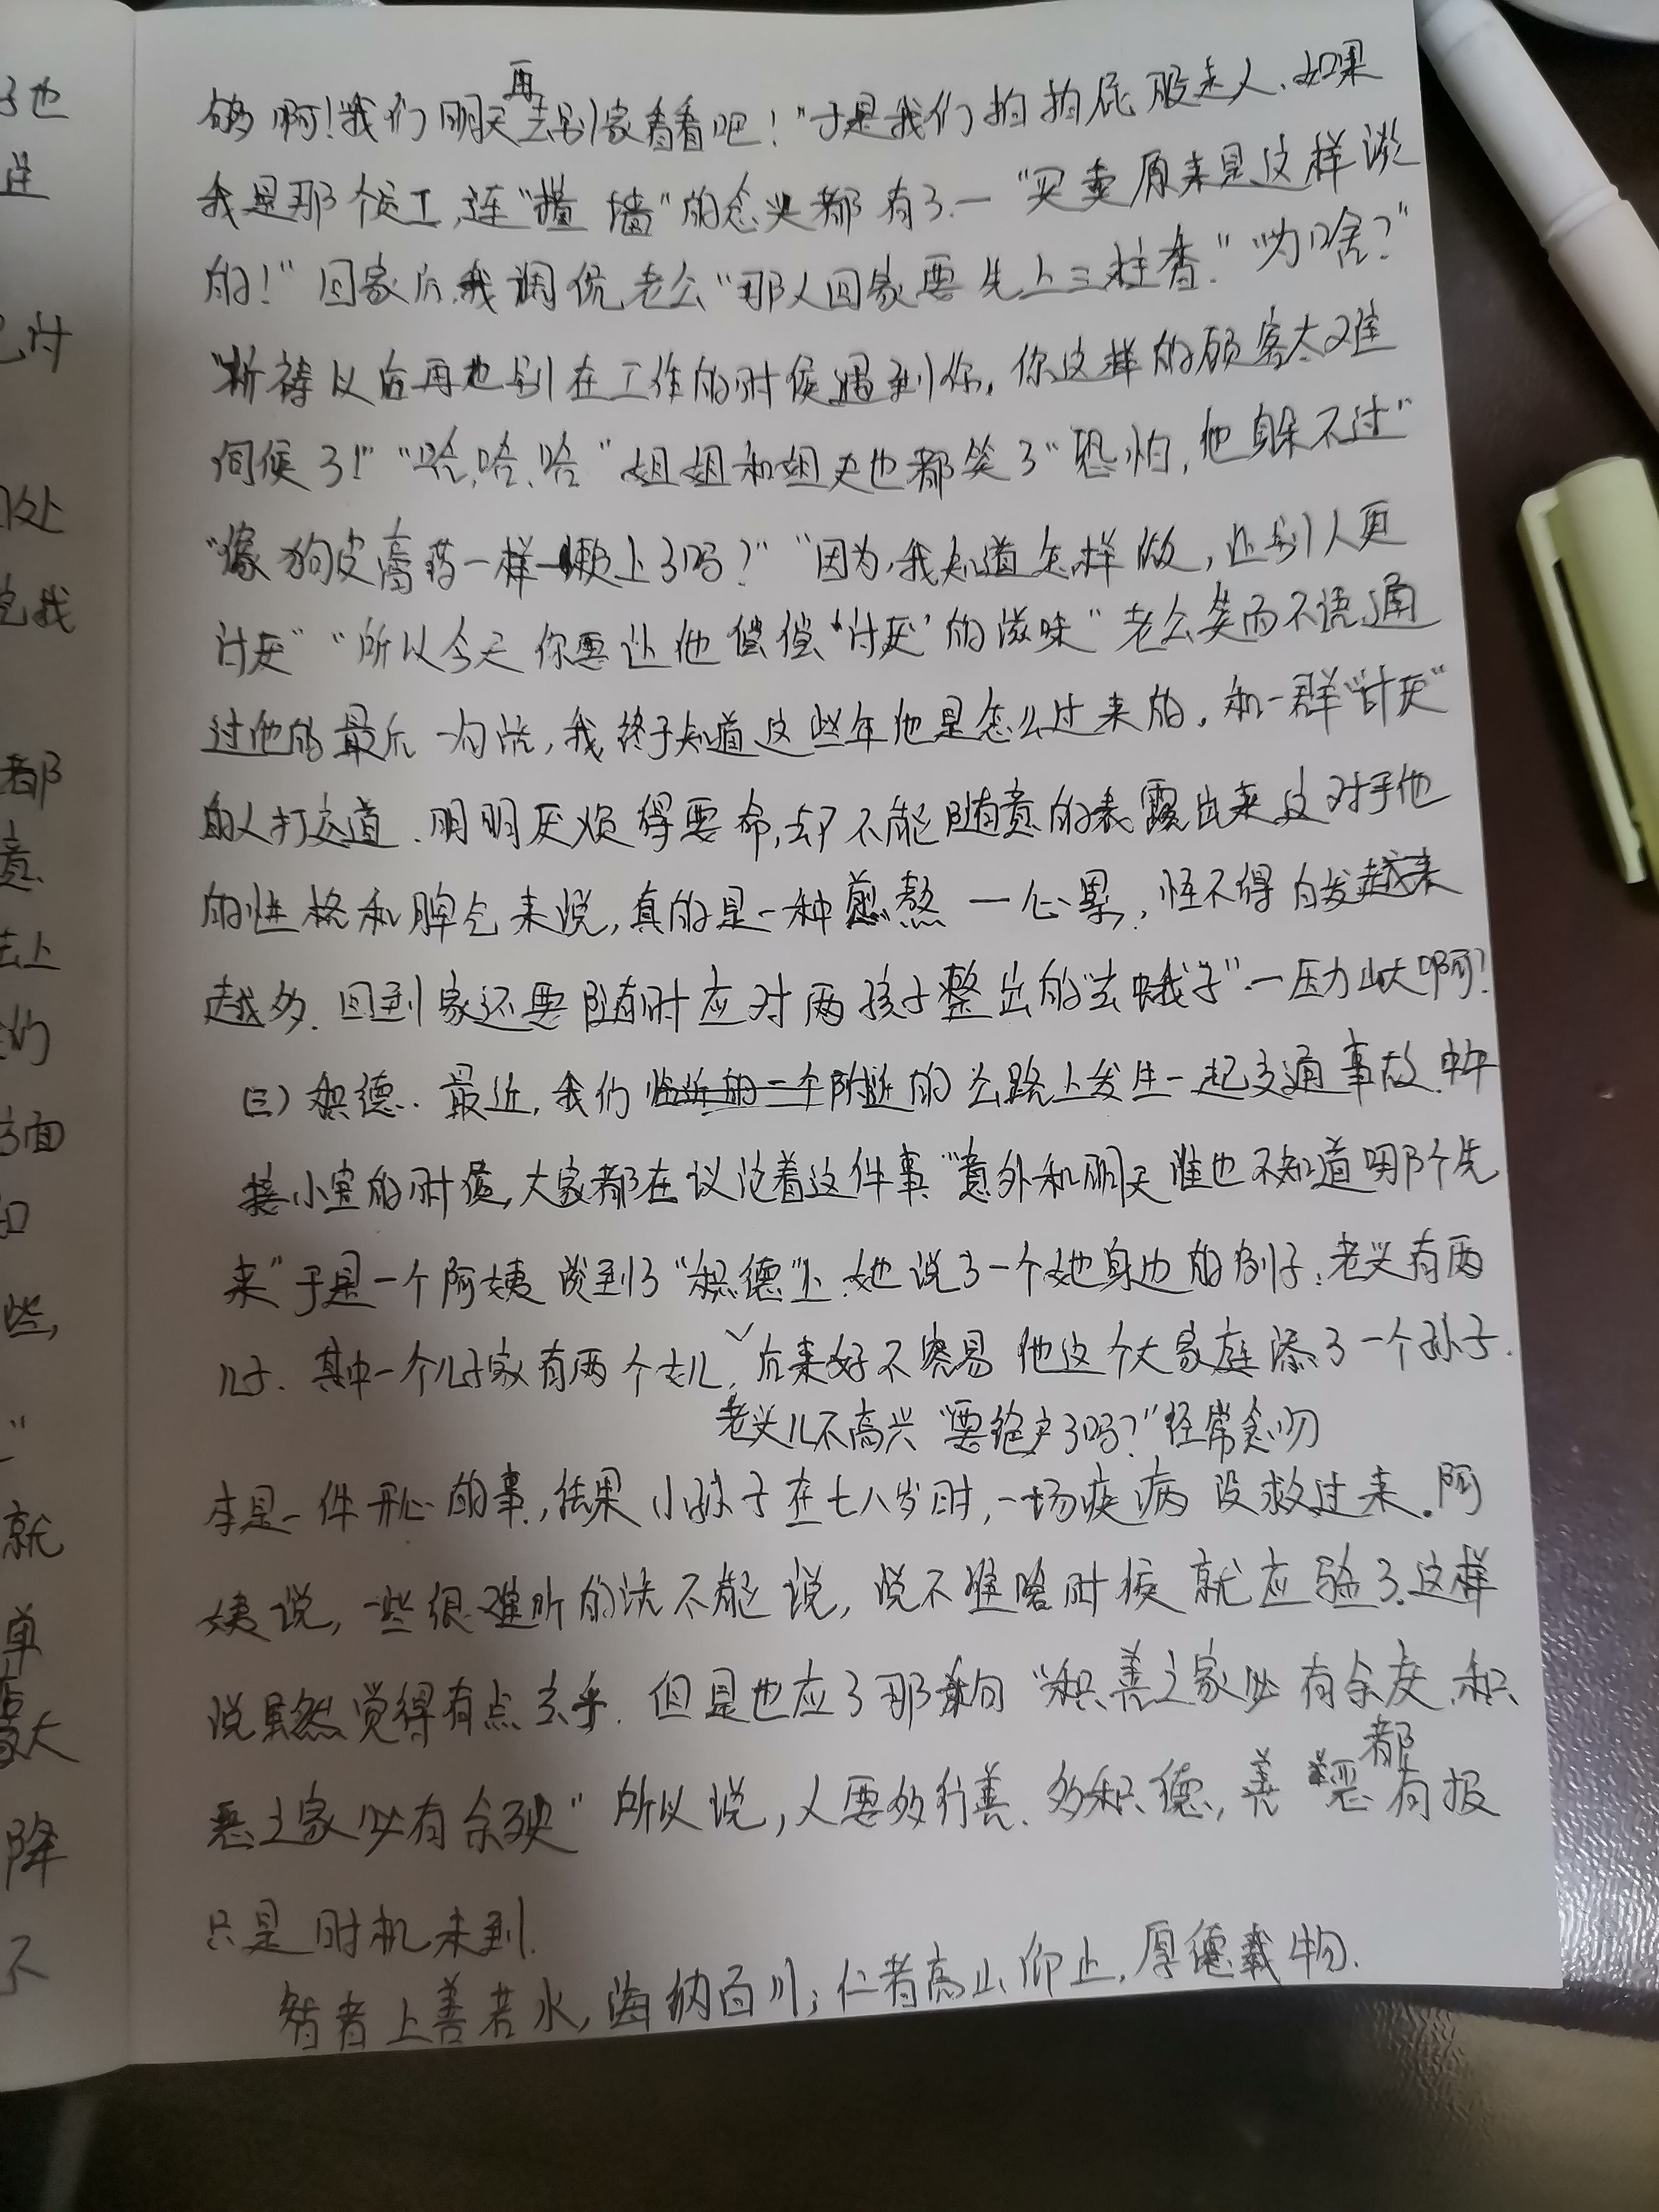 够啊！我们明天再去别家看看吧！"于是我们拍拍屁股走人.如果
我是那个员工,连"撞墙"的念头都有了.一"买卖原来是这样谈
的！"回家后,我调侃老公"那人回家要先上三柱香." "为啥?"
"祈祷以后再也别在工作的时候遇到你,你这样的顾客太难
伺候了!" "哈,哈,哈"姐姐和姐夫也都笑了"恐怕,他躲不过"
"像狗皮膏药一样赖上了吗?" "因为,我知道怎样做,让别人更
讨厌" "所以今天你要让他偿偿'讨厌'的滋味"老公笑而不语,通
过他的最后一句话,我终于知道这些年他是怎么过来的.和一群"讨厌"
的人打交道.明明厌烦得要命,却不能随意的表露出来,这对于他
的性格和脾气来说,真的是一种煎熬一心累,怪不得白发越来
越多.回到家还要随时应对两孩子整出的"去蛾子"一压力山大啊?
(三)积德.最近,我们附近的公路上发生一起交通事故.中午
接小宝的时候,大家都在议论着这件事"意外和明天谁也不知道哪个先
来"于是一个阿姨说到了"积德"上.她说了一个她身边的例子:老头有两
儿子.其中一个儿子家有两个女儿,后来好不容易他这个大家庭添了一个孙子.
老头儿不高兴"要绝户了吗?"经常念叨
本是一件开心的事,结果小孙子在七八岁时,一场疾病没救过来.阿
姨说,一些很难听的话不能说,说不准啥时候就应验了.这样
说虽然觉得有点玄乎.但是也应了那句"积善之家必有余庆,积
恶之家必有余殃"所以说,人要多行善.多积德,善恶都有报
只是时机未到.
智者上善若水,海纳百川;仁者高山仰止,厚德载物.
也
付
处
我
都
意
去上
们
方面
和
些,
就
单
大
降
不